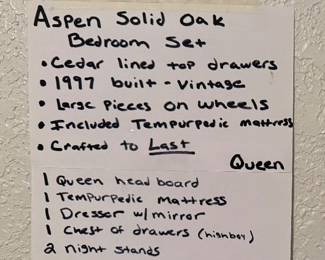 Aspen Solid Oak
Bedroom Set
• Cedar lined top drawers
• 1997 built - Vintage
• Large Pieces on wheels
• Included Tempurpedic mattress
• Crafted to Last
Queen
1 Queen head board
1 Tempurpedic mattress
1 Dresser w/mirror
1 Chest of drawers (highboy)
2 night stands